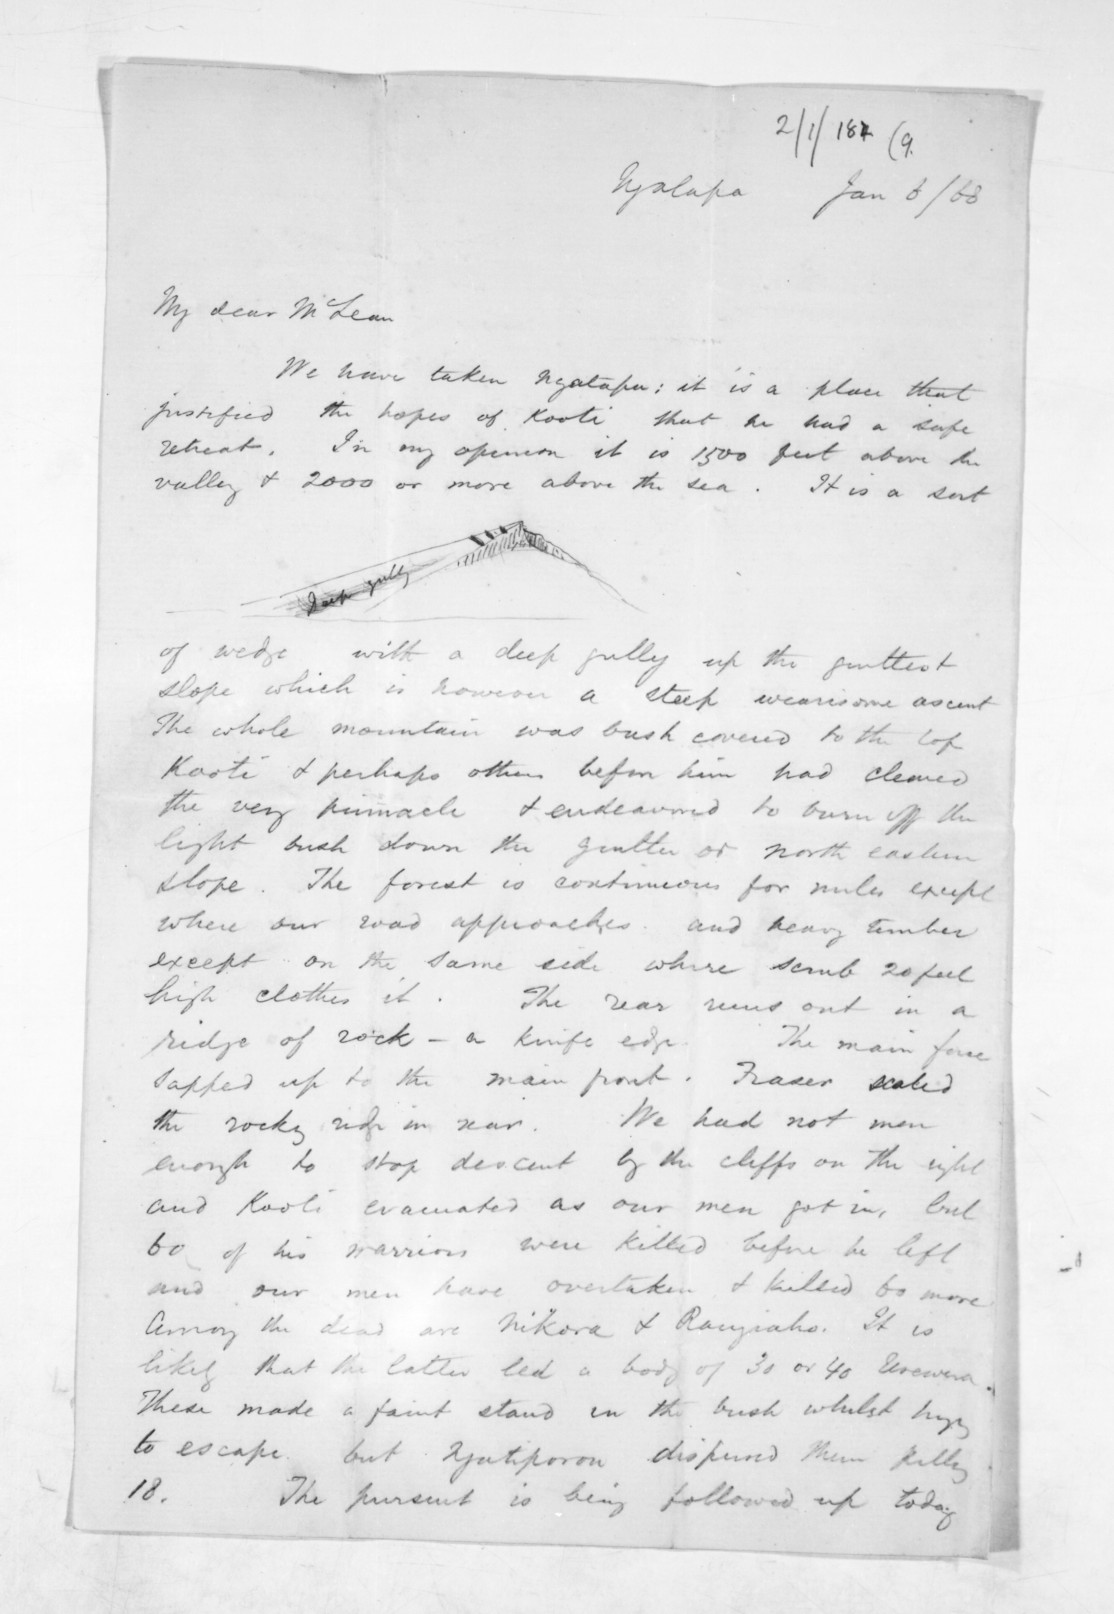 2/1/187 (9.
Ngatapa Jan 6/68
My dear McLean
We have taken Ngatapa: it is a place that
justified the hopes of Kooti that he had a safe
retreat. In my opinion it is 1500 feet above the
valley & 2000 or more above the sea. It is a sort
Deep gully
of wedge with a deep gully up the gentlest
slope which is however a steep wearisome ascent
The whole mountain was bush covered to the top
Kooti & perhaps others before him had cleared
the very pinnacle & endeavored to burn off the
light bush down the gentler or north eastern
slope. The forest is continuous for miles except
where our road approaches and heavy timber
except on the same side where scrub 20 feet
high clothes it. The rear runs out in a
ridge of rock - a knife edge. The main force
sapped up to the main front. Fraser scaled
the rocky ridge in rear. We had not men
enough to stop descent by the cliffs on the right
and Kooti evacuated as our men got in, but
60 of his warriors were killed before he left
and our men have overtaken & killed 60 more
Among the dead are Nikora & Rangiaho. It is
likely that the latter led a body of 30 or 40 Urewera.
These made a faint stand in the bush whilst trying
to escape but Ngatiporou dispersed them killing
18. The pursuit is being followed up today